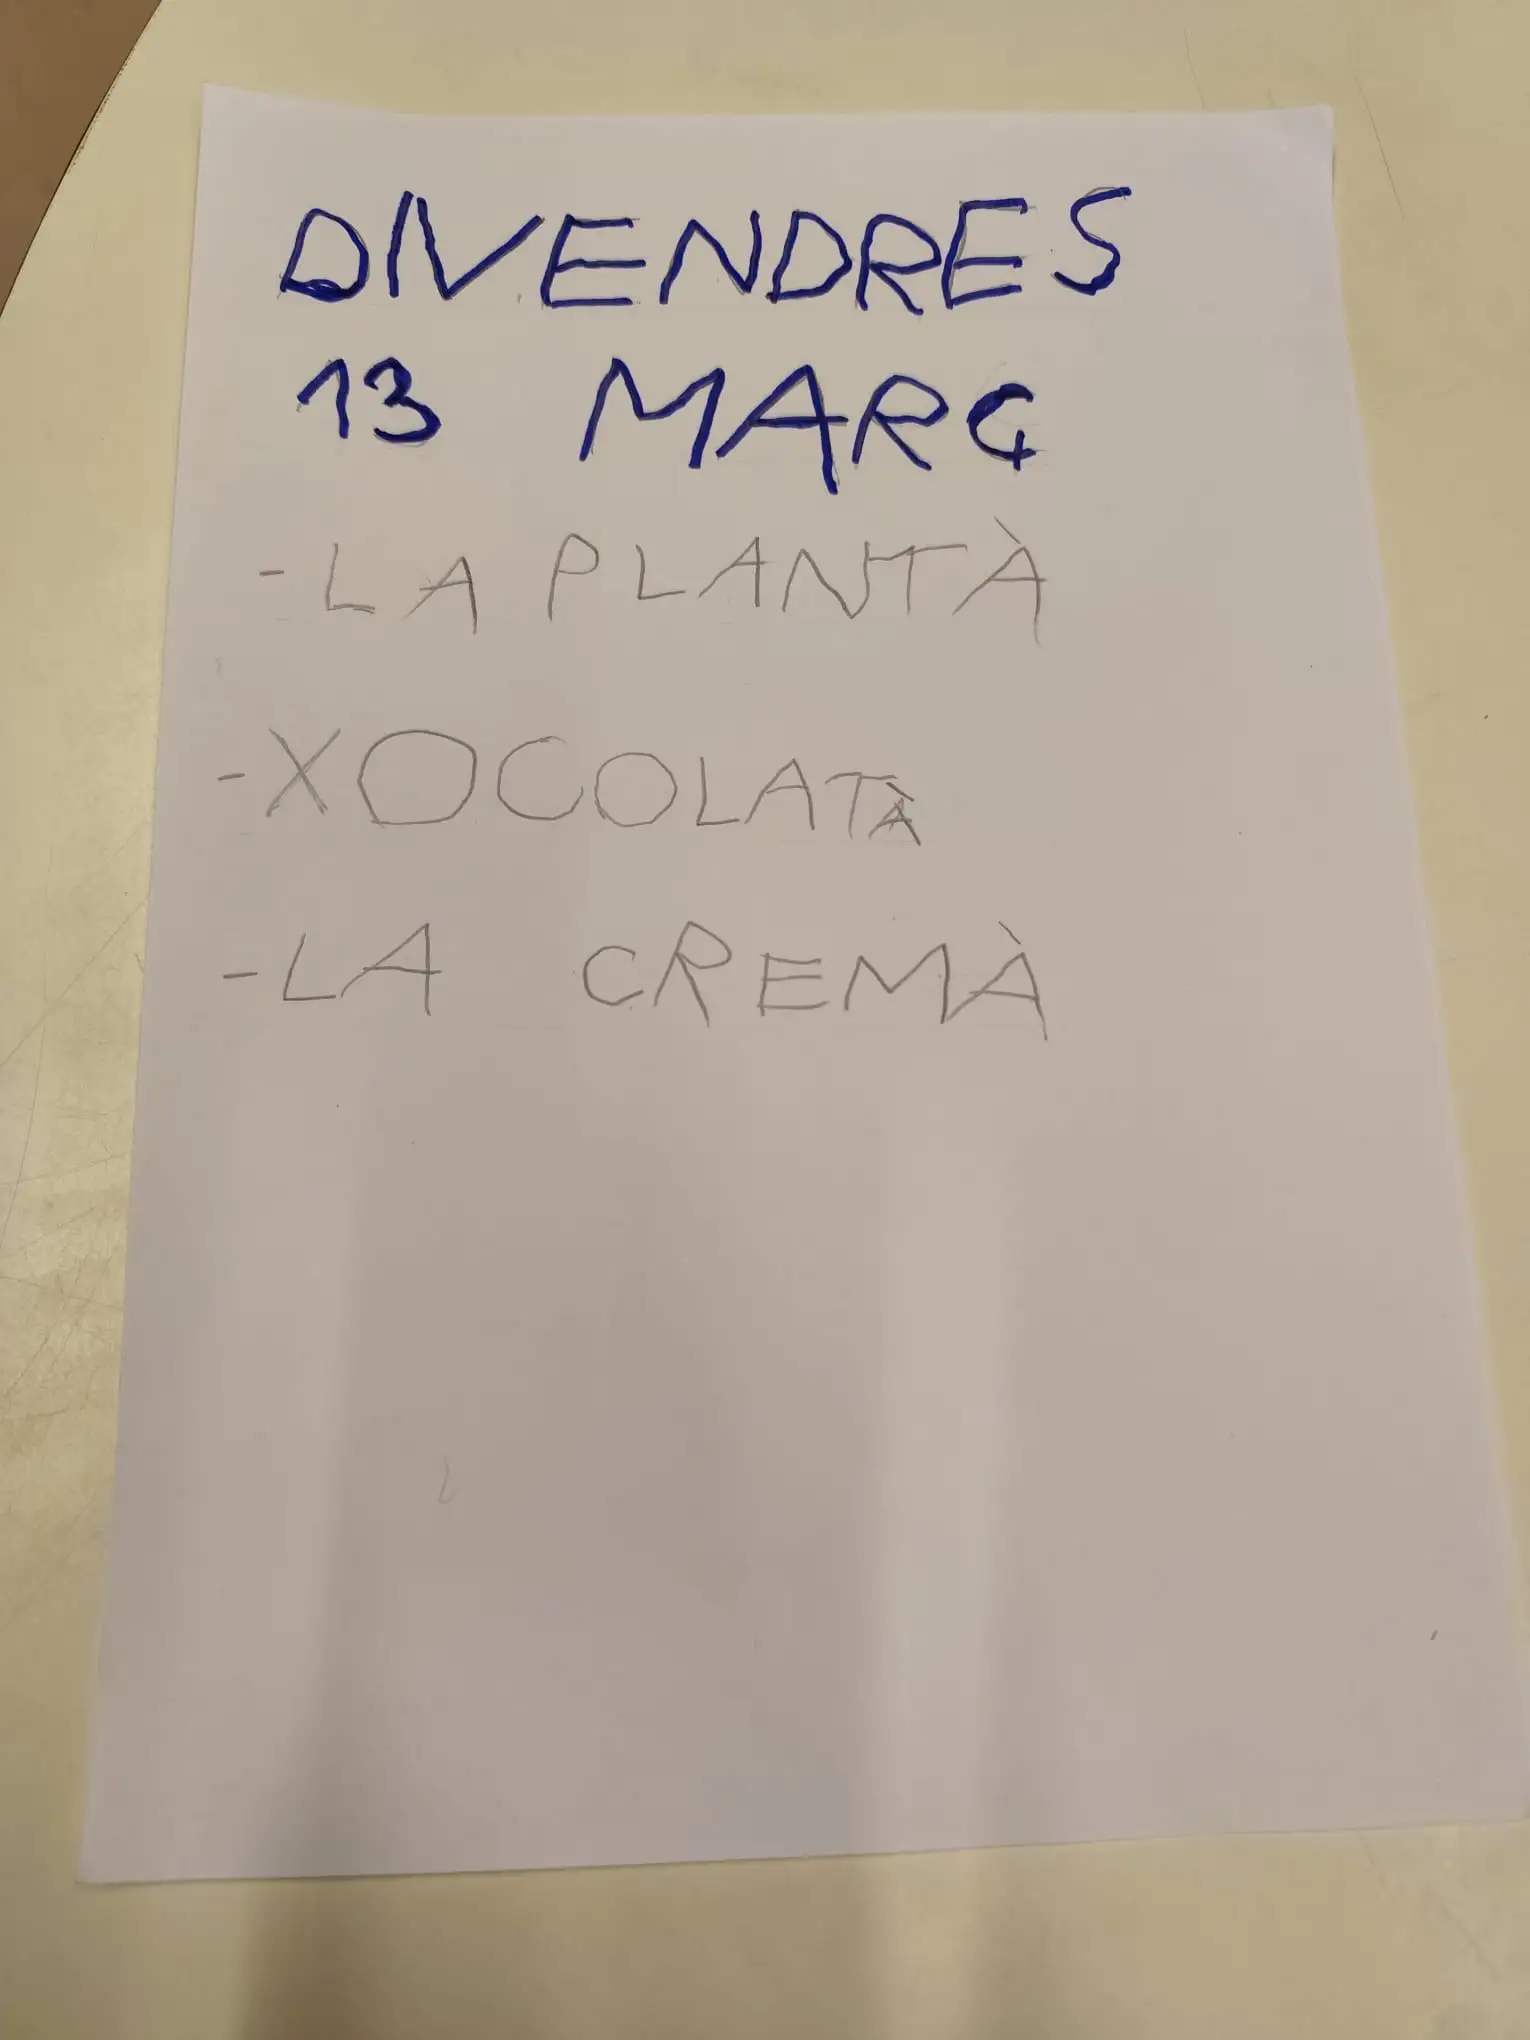 DIVENDRES
13 MARÇ
- LA PLANTÀ
- XOCOLATÀ
- LA CREMÀ